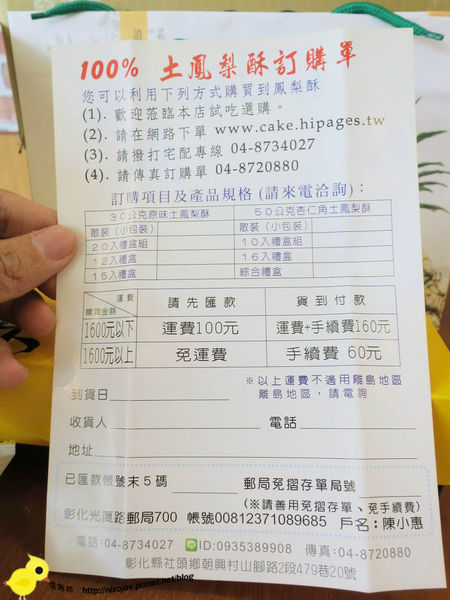 100% 土鳳梨酥訂購單
您可以利用下列方式購買到鳳梨酥
(1). 歡迎蒞臨本店試吃選購。
(2). 請在網路下單 www.cake.hipages.tw
(3). 請撥打宅配專線 04-8734027
(4). 請傳真訂購單 04-8720880
訂購項目及產品規格 (請來電洽詢)：
30公克原味土鳳梨酥 50公克杏仁角土鳳梨酥
散裝（小包裝） 散裝（小包裝）
20入禮盒組 10入禮盒組
12入禮盒 16入禮盒
15入禮盒 綜合禮盒
運費 購買金額 請先匯款 貨到付款
1600元以下 運費100元 運費+手續費160元
1600元以上 免運費 手續費 60元
※以上運費不適用離島地區
離島地區，請電詢
到貨日
收貨人 電話
地址
已匯款帳號末5碼 郵局免摺存單局號
(※請善用免摺存單、免手續費)
彰化光復路郵局700 帳號00812371089685 戶名：陳小惠
電話:04-8734027 LINE ID:0935389908 傳真:04-8720880
彰化縣社頭鄉朝興村山腳路2段479巷20號
http://nixojov.pixnet.net/blog